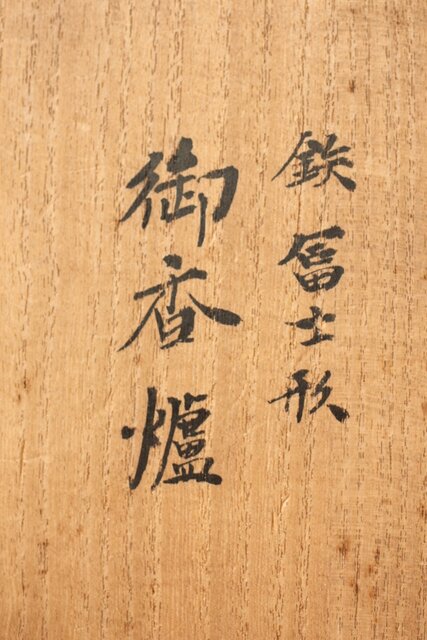 鉄冨士形
御香爐